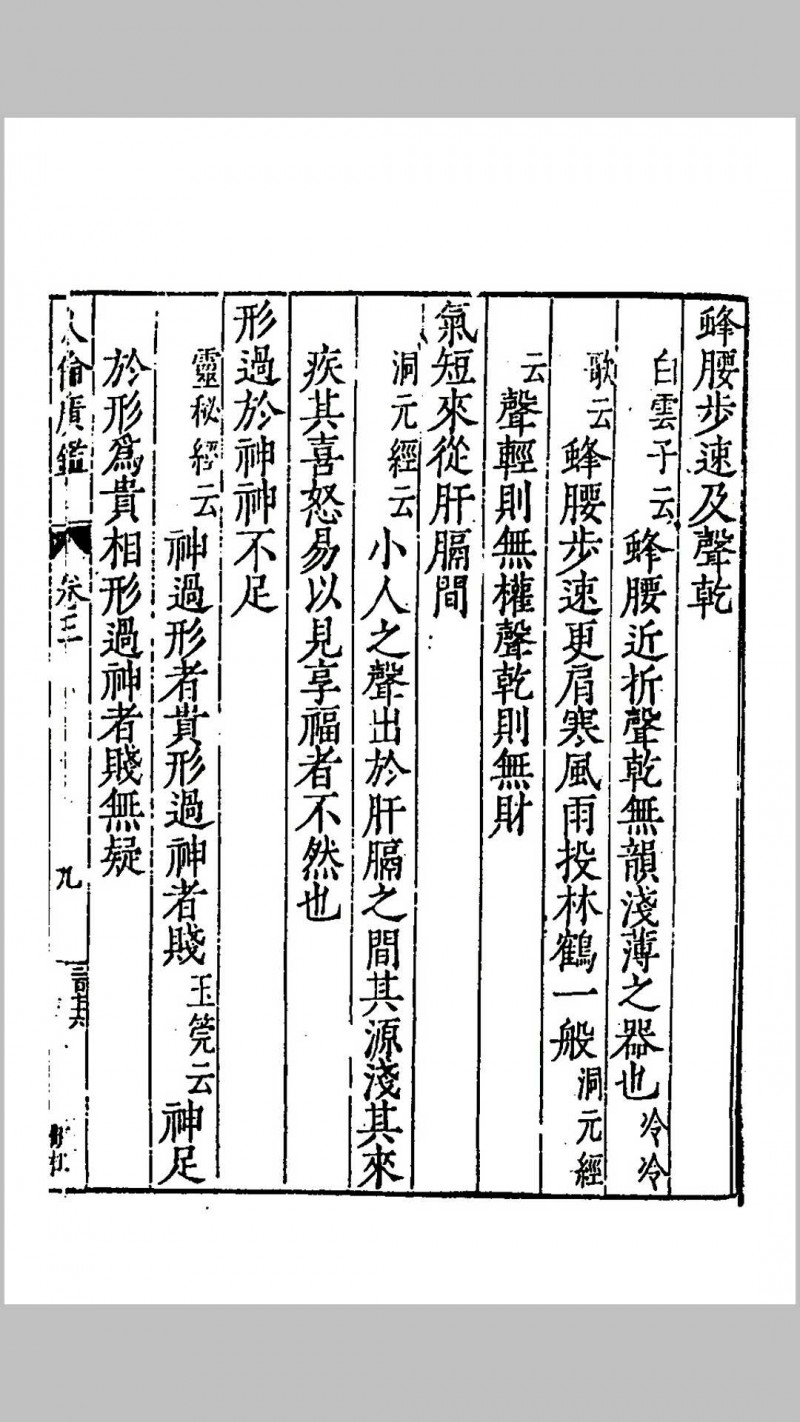 蜂腰步速及聲乾
白雲子云蜂腰近折聲乾無韻淺薄之器也泠泠
歌云蜂腰步速更肩寒風雨投林鶴一般洞元經
云聲輕則無權聲乾則無財
氣短來從肝膈間
洞元經云小人之聲出於肝膈之間其源淺其來
疾其喜怒易以見享福者不然也
形過於神神不足
靈秘經云神過形者貴形過神者賤玉筦云神足
於形爲貴相形過神者賤無疑
人倫廣鑑 卷三 九